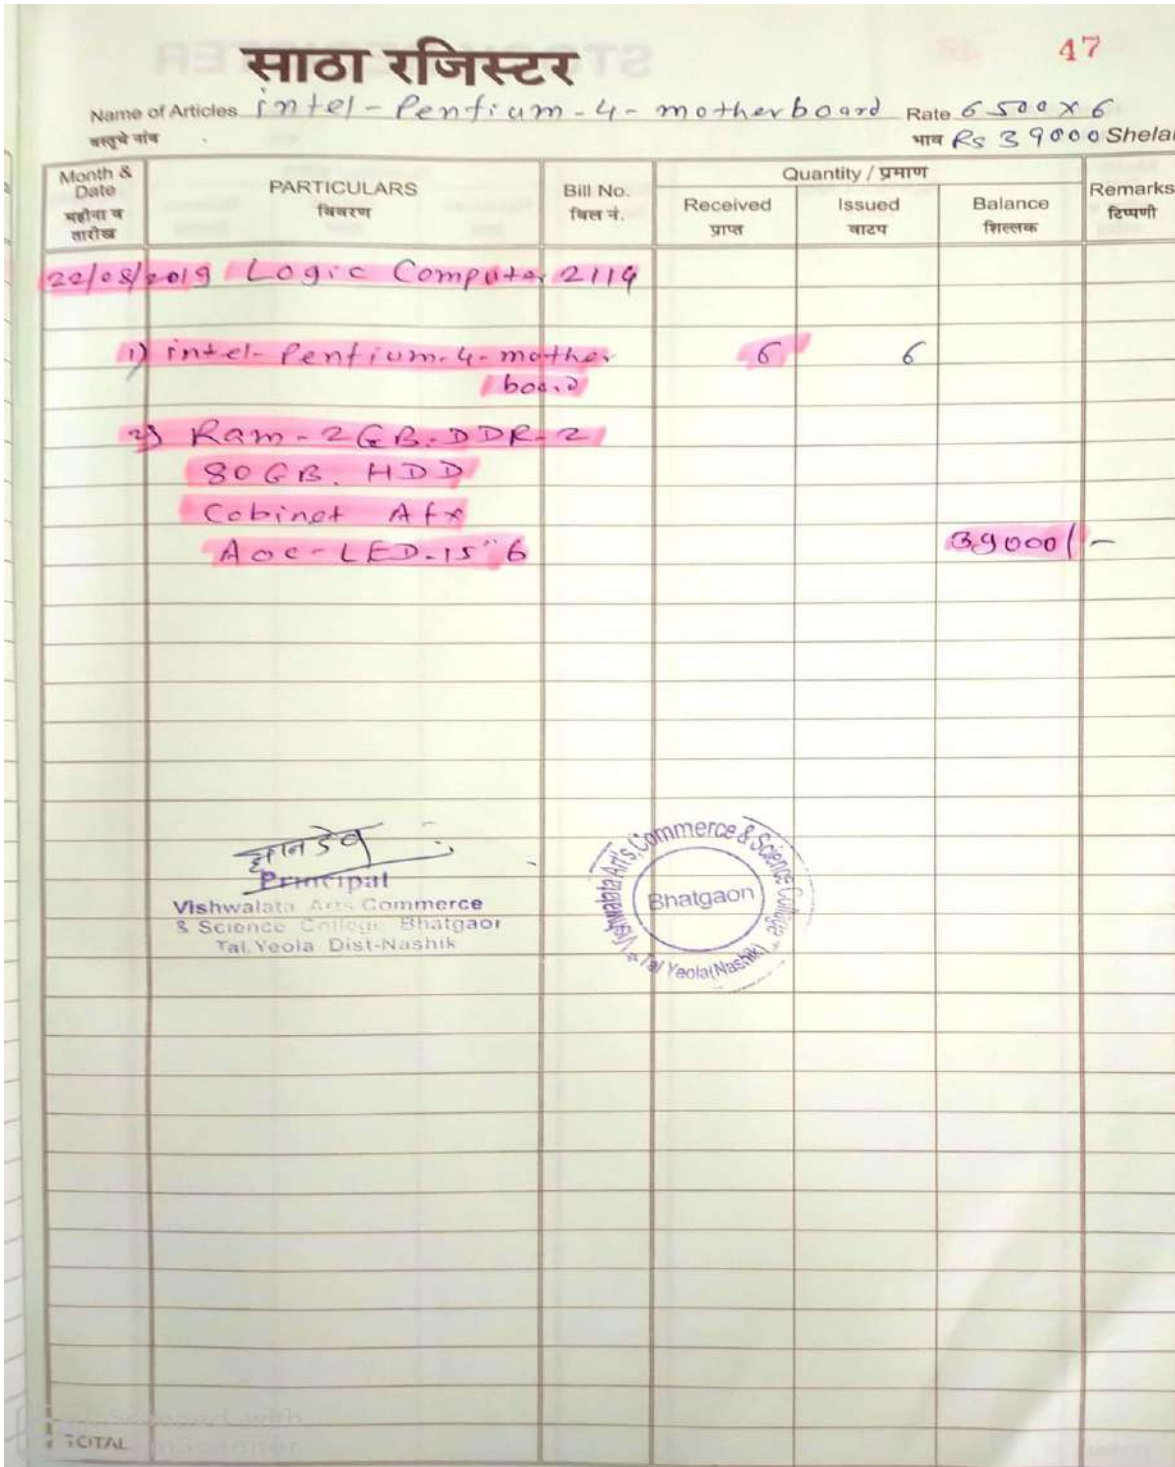 साठा रजिस्टर
47
Name of Articles intel - Pentium - 4 - motherboard Rate 6500 x 6
वस्तूचे नांव भाव Rs 39000 Shelar
Month & Date PARTICULARS Bill No. Quantity / प्रमाण Remarks
महीना व तारीख विवरण बिल नं. Received Issued Balance टिप्पणी
प्राप्त वाटप शिल्लक
22/08/2019 Logic Computer 2114
1) intel - Pentium - 4 - mother 6 6
board
2) Ram - 2GB. DDR - 2
80 GB. HDD
Cabinet Atx
Aoc - LED - 15" 6 39000/-
ज्ञानदेव
Principal
Vishwalata Arts Commerce
& Science College Bhatgaon
Tal. Yeola Dist-Nashik
Vishwalata Art's, Commerce & Science College
Bhatgaon
Tal Yeola (Nashik)
TOTAL